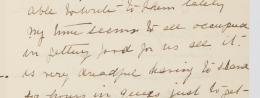 able to write to them lately
My time seems to be occupied
in getting food for us see it
is very dreadful having to stand
for hours in queus just to get